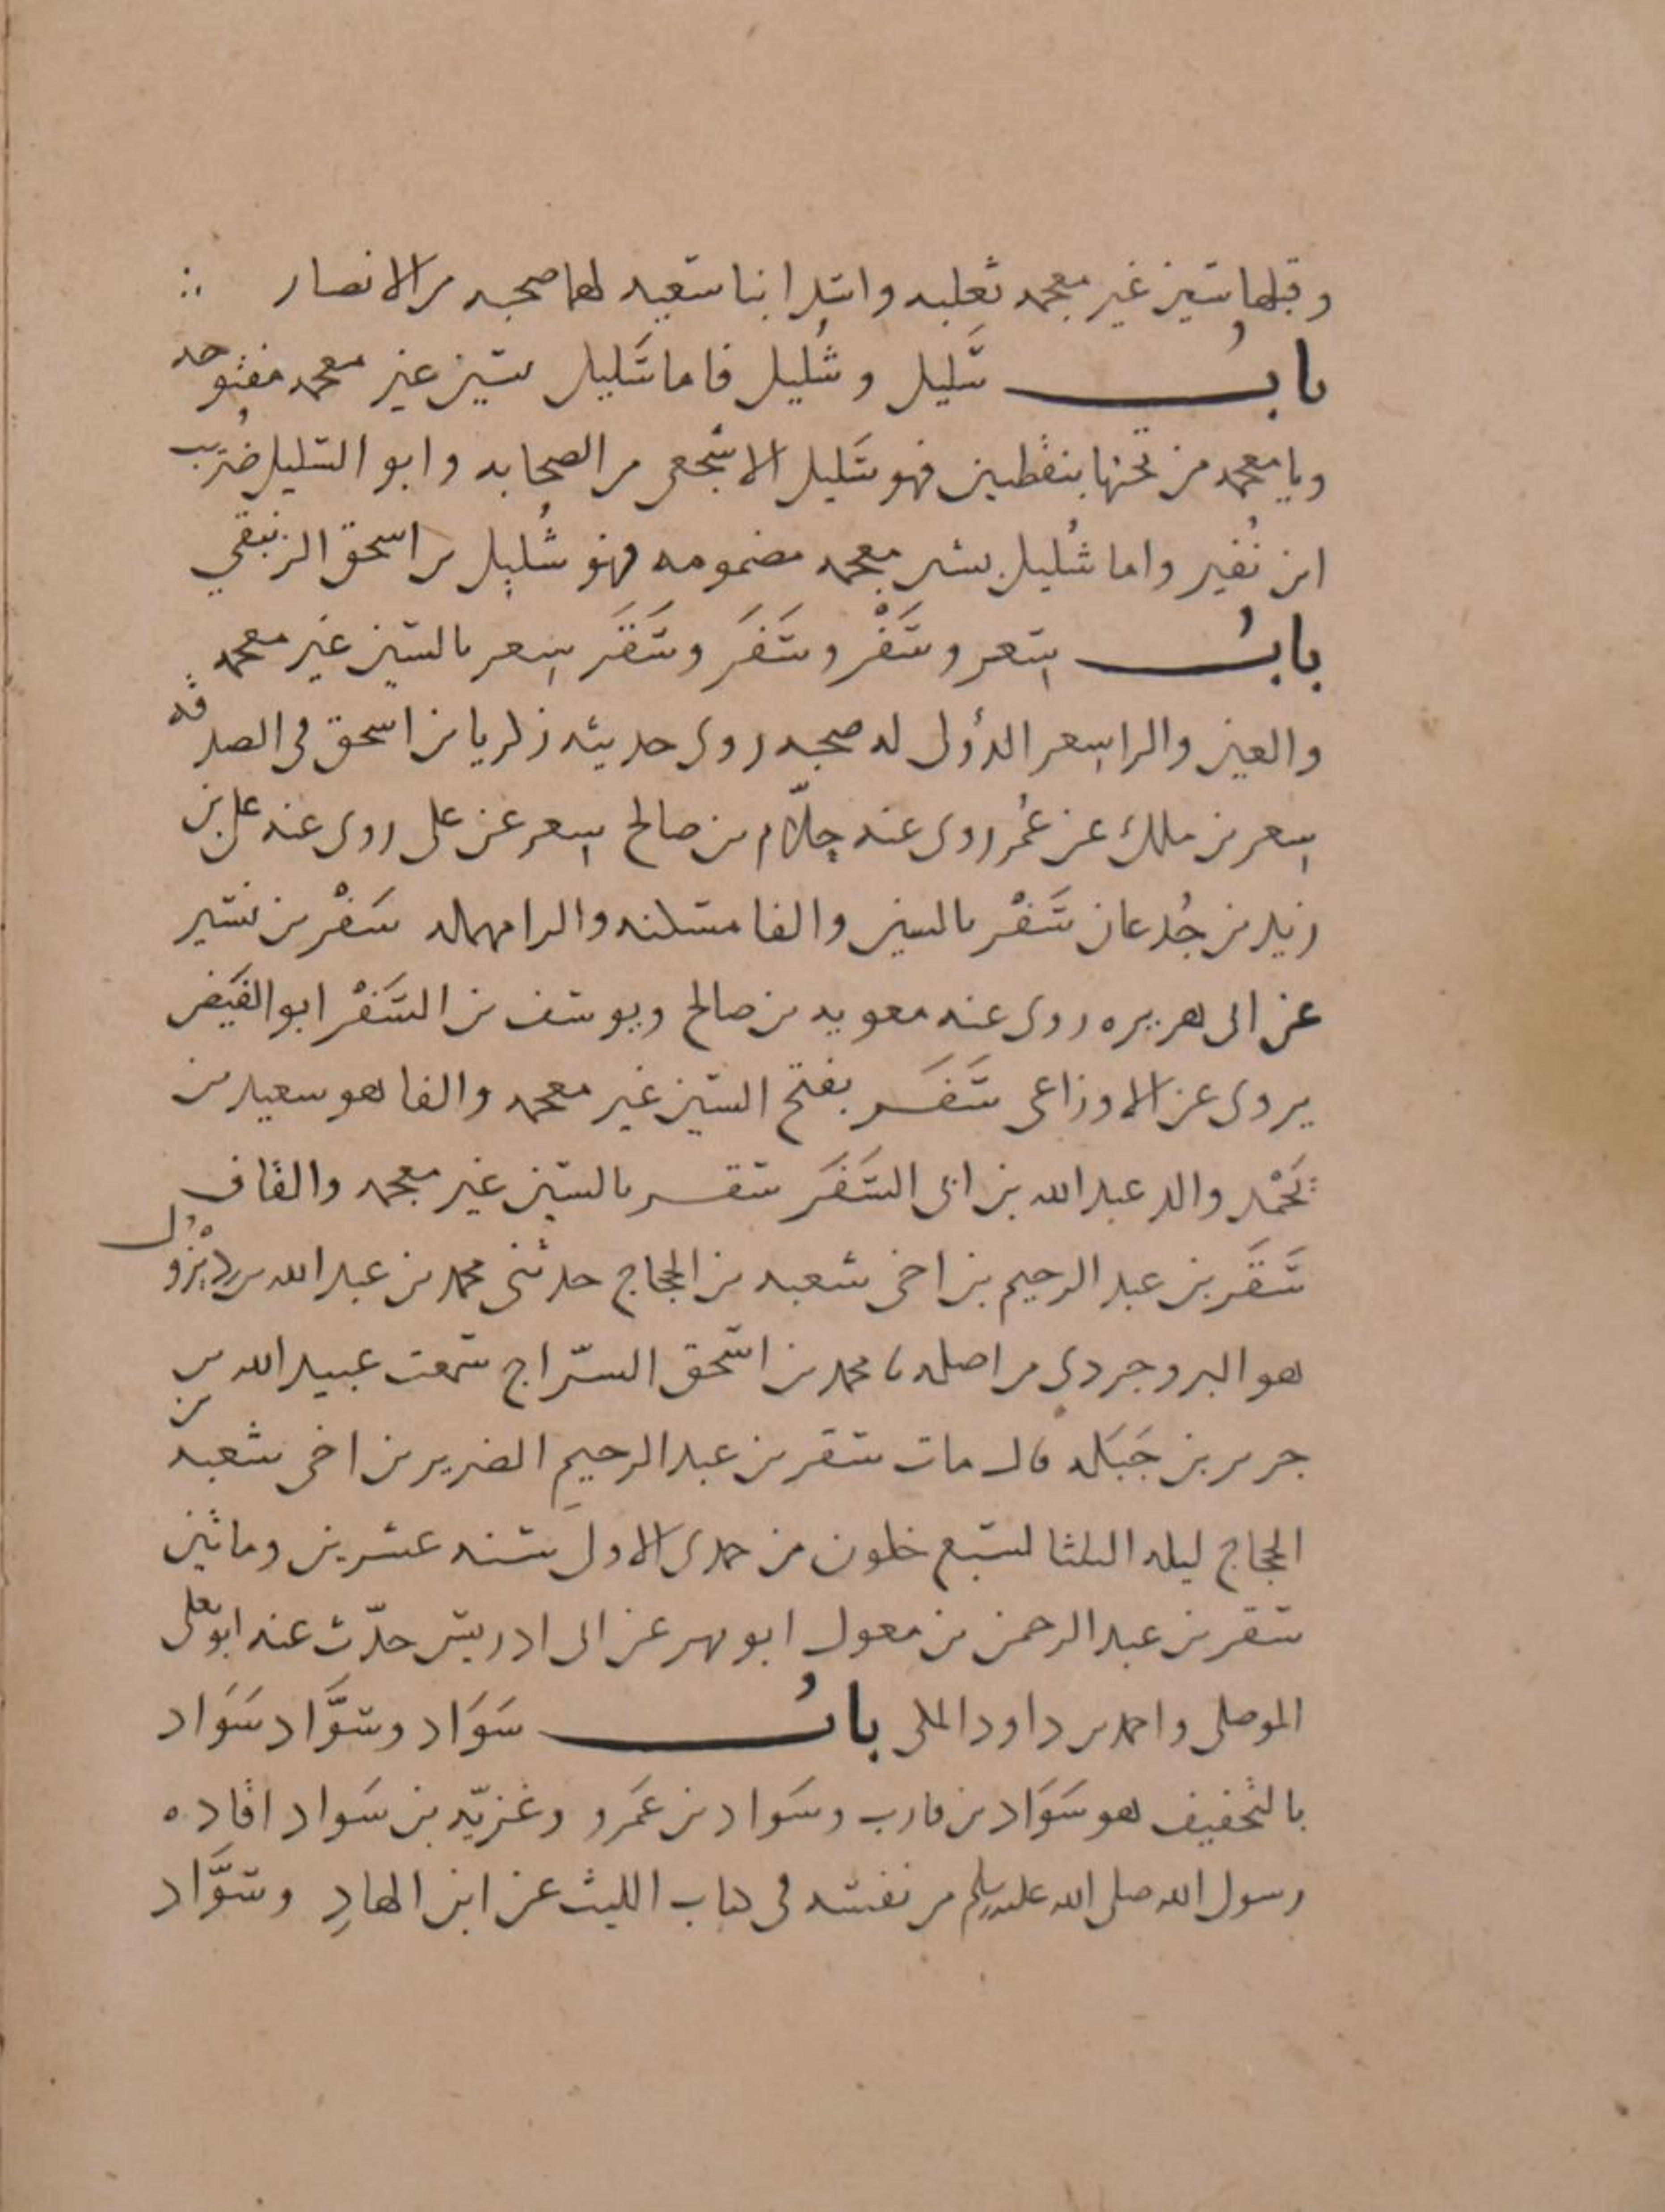 وقبلها سين غير معجمه ثعلبه واسد ابنا سعيه لهما صحبه من الانصار
باب سَليل وشُليل فاما سَليل بسين غير معجمه مفتوحه
ويا معجمه من تحتها بنقطين فهو سَليل الاشجعي من الصحابه وابو السليل ضُريب
ابن نُفير واما شُليل بشين معجمه مضمومه فهو شُليل بن اسحق الزنبقي
بابُ سِعر وسَفْر وسَفَر وسَقَر سِعر بالسين غير معجمه
والعين والرا سِعر الدؤلى له صحبه روى حديثه زكريا بن اسحق فى الصدقه
سِعر بن ملك عن عُمر روى عنه حِلّام بن صالح سِعر عن على روى عنه على بن
زيد بن جُدعان سَفْر بالسين والفا مسكنه والرا مهمله سَفْر بن نسير
عن ابى هريره روى عنه معويه بن صالح ويوسف بن السَفْر ابو الفَيض
يروى عن الاوزاعى سَفَر بفتح السين غير معجمه والفا هو سعيد بن
يُحْمِد والد عبد الله بن ابى السَفَر سقر بالسين غير معجمه والقاف
سَقَر بن عبد الرحيم بن اخى شعبه بن الحجاج حدثنى محمد بن عبد الله بن
هو البروجردى من اصله نا محمد بن اسحق السرّاج سمعت عبيد الله بن
جرير بن جَبَله قال مات سقر بن عبد الرحيم الضرير بن اخى شعبه بن
الحجاج ليله الثلثا لسبع خلون من جمدى الاول سنه عشرين وماتين
سقر بن عبد الرحمن بن مغول ابو بهز عن ابن ادريس حدّث عنه ابو يعلى
الموصلى واحمد بن داود المكى بابُ سَوَاد وسوَّاد سَوَاد
بالتخفيف هو سَوَاد بن قارب وسَوَاد بن عَمرو وغزيّه بن سَواد اقاده
رسول الله صلى الله عليه وسلم من نفسه فى كتاب الليث عن ابن الهادِ وسوَّاد